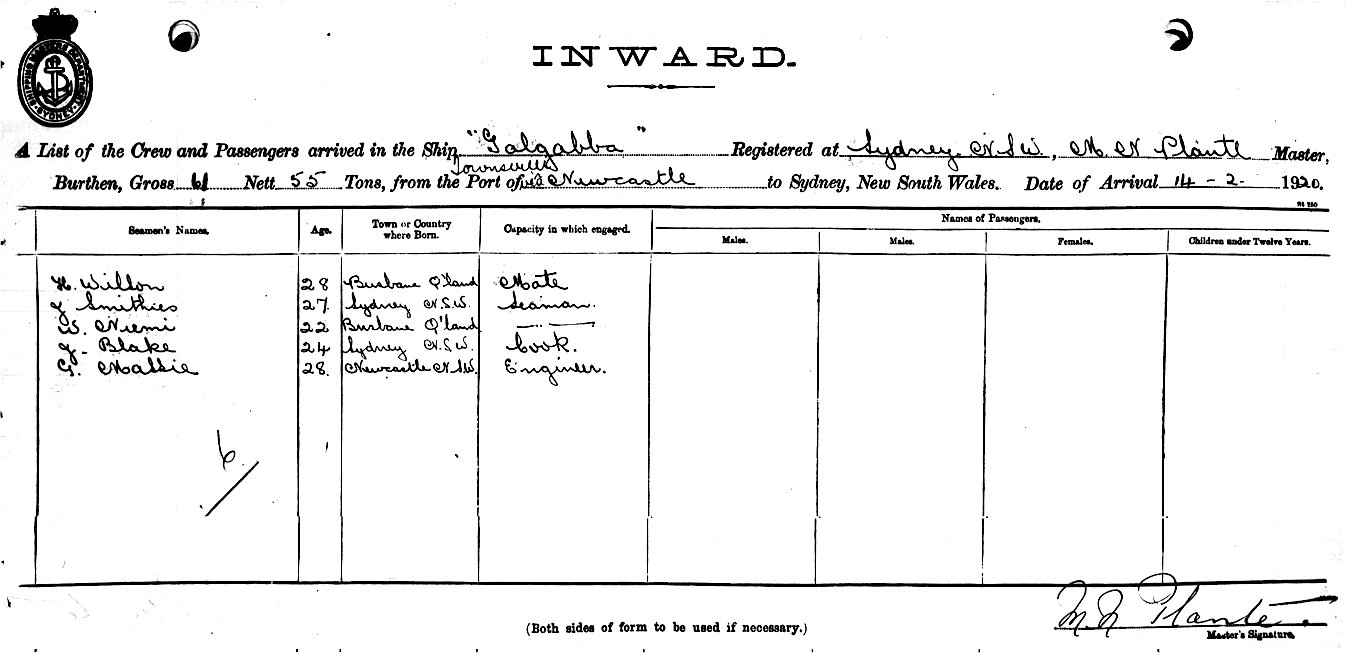 SHIPPING MASTERS DEPARTMENT SYDNEY
INWARD.
A List of the Crew and Passengers arrived in the Ship "Galgabba" Registered at Sydney N.S.W., M. N Plante Master,
Townsville
Burthen, Gross 61 Nett 55 Tons, from the Port of via Newcastle to Sydney, New South Wales. Date of Arrival 14 - 2 - 1920.
Names of Passengers.
Seamen's Names. Age. Town or Country where Born. Capacity in which engaged. Males. Males. Females. Children under Twelve Years.
H. Wilson 28 Brisbane Q'land Mate
J Smithies 27 Sydney N.S.W. Seaman.
W. Niemi 22 Brisbane Q'land — " —
J. Blake 24 Sydney N.S.W. Cook.
G. Massie 28. Newcastle N.S.W. Engineer.
6
M. N Plante.
(Both sides of form to be used if necessary.)
Master's Signature.